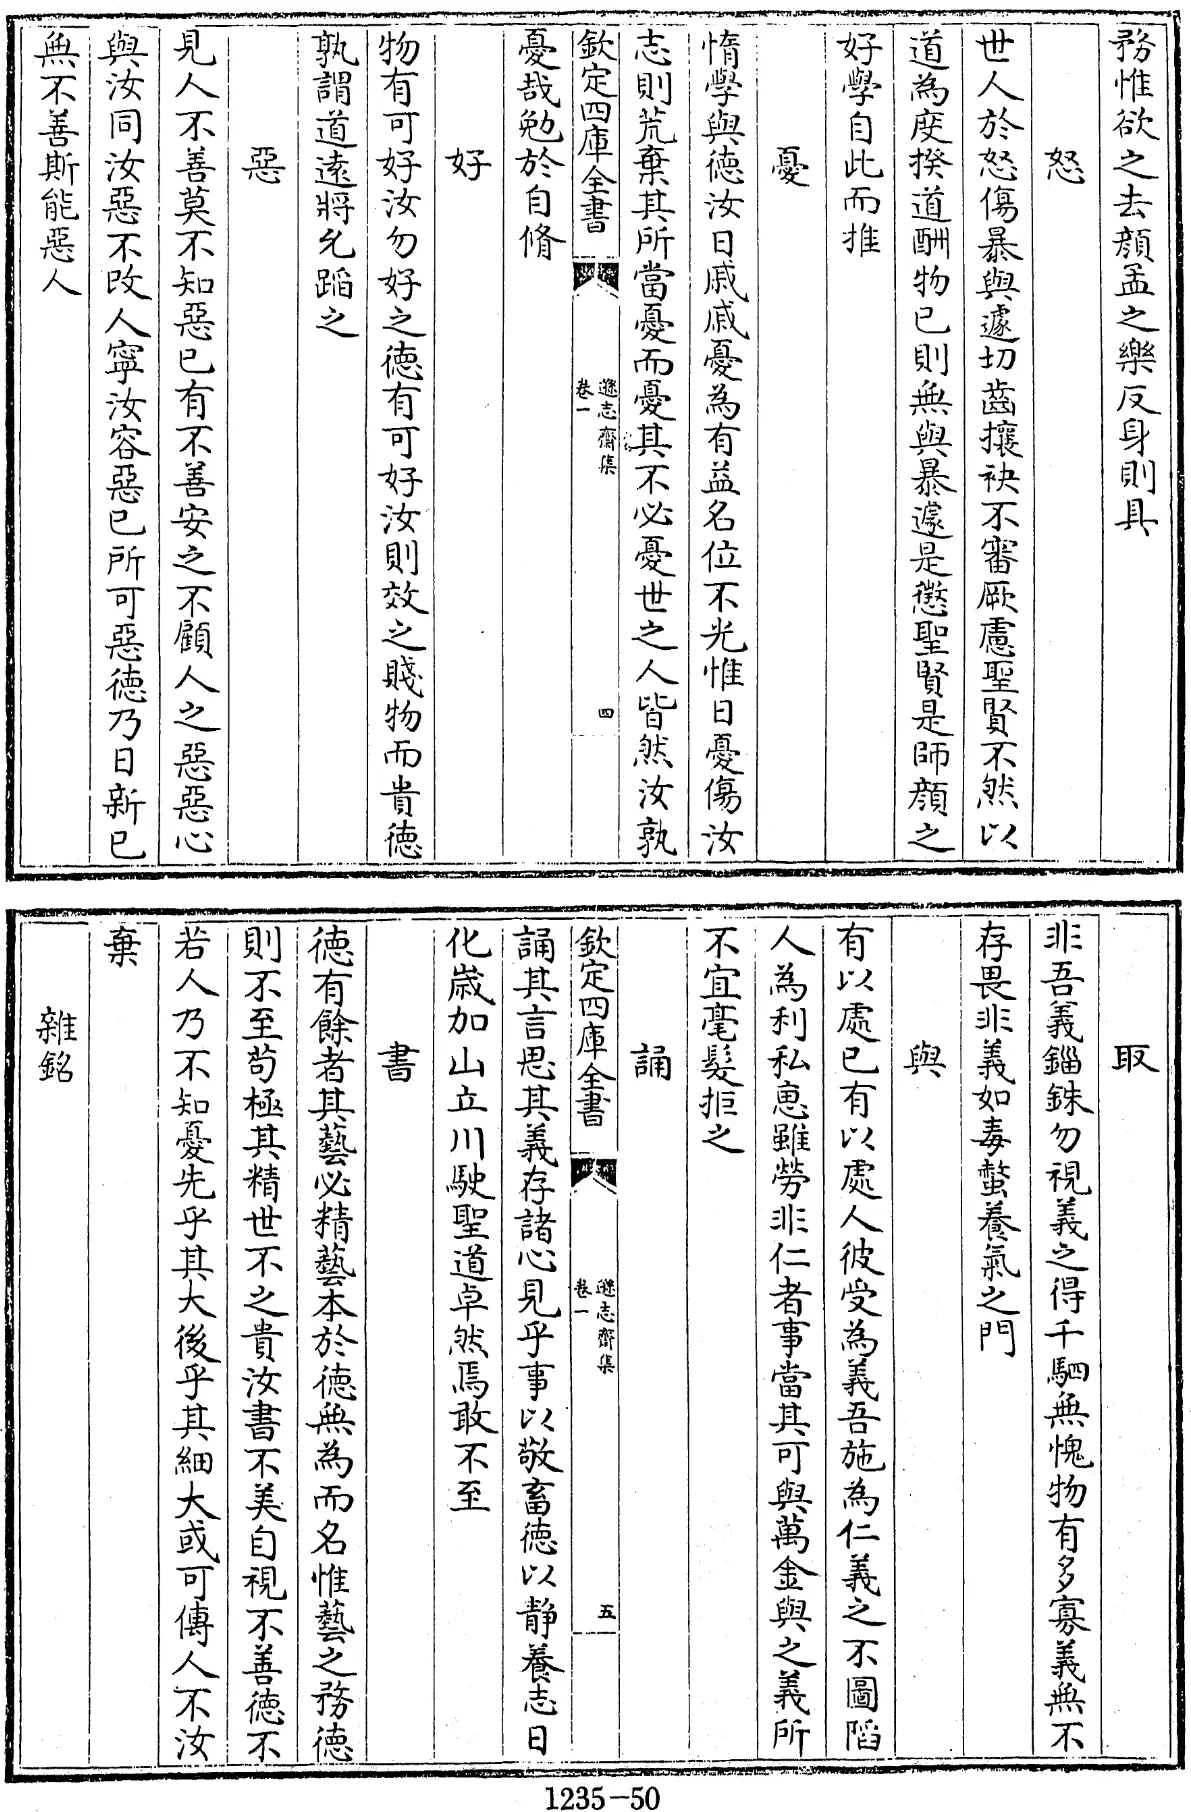 務惟欲之去顔孟之樂反身則具
怒
世人於怒傷暴與遽切齒攘袂不審厥慮聖賢不然以
道為度揆道酬物已則無與暴遽是懲聖賢是師顔之
好學自此而推
憂
惰學與德汝日戚戚憂為有益名位不光惟日憂傷汝
志則荒棄其所當憂而憂其不必憂世之人皆然汝孰
欽定四庫全書
遜志齋集
卷一
四
憂哉勉於自脩
好
物有可好汝勿好之德有可好汝則效之賤物而貴德
孰謂道逺將允蹈之
惡
見人不善莫不知惡已有不善安之不顧人之惡惡心
與汝同汝惡不改人寧汝容惡已所可惡德乃日新已
無不善斯能惡人
取
非吾義錙銖勿視義之得千駟無愧物有多寡義無不
存畏非義如毒螫養氣之門
與
有以處已有以處人彼受為義吾施為仁義之不圖陷
人為利私惠雖勞非仁者事當其可與萬金與之義所
不宜毫髮拒之
誦
欽定四庫全書
遜志齋集
卷一
五
誦其言思其義存諸心見乎事以敬畜德以静養志日
化歲加山立川駛聖道卓然焉敢不至
書
德有餘者其藝必精藝本於德無為而名惟藝之務德
則不至茍極其精世不之貴汝書不美自視不善德不
若人乃不知憂先乎其大後乎其細大或可傳人不汝
棄
雜銘
1235-50